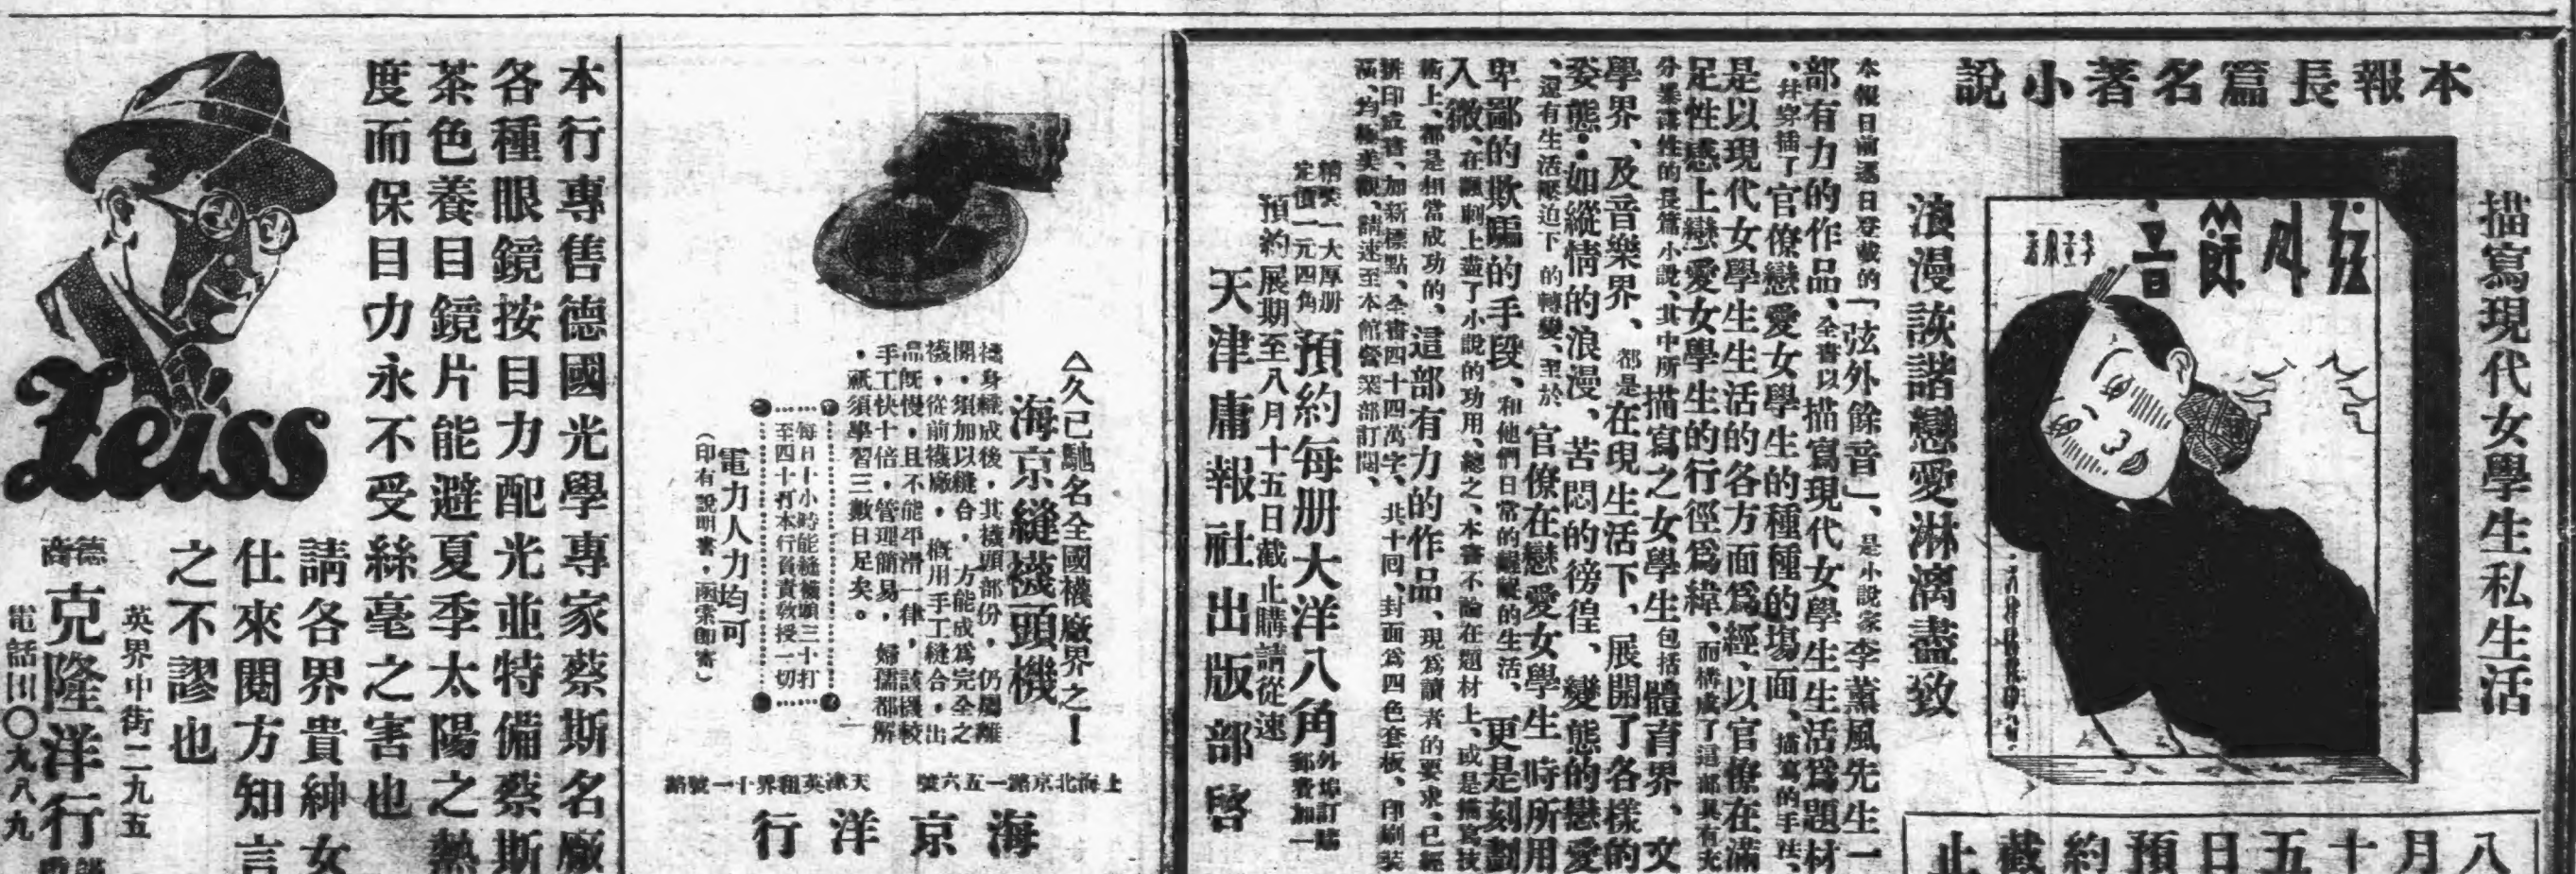 本報長篇名著小說
描寫現代女學生私生活
弦外餘音
浪漫詼諧戀愛淋漓盡致
八月十五日預約截止
本報日前逐日登載的「弦外餘音」、是小說家李薰風先生一
部有力的作品、全書以描寫現代女學生生活爲題材
、并穿插了官僚戀愛女學生的種種的塲面、描寫的手法、
是以現代女學生生活的各方面爲經、以官僚在滿
足性感上戀愛女學生的行徑爲緯、而構成了這部具有充
分暴露性的長篇小說、其中所描寫之女學生包括體育界、文
學界、及音樂界、都是在現生活下、展開了各樣的
姿態：如縱情的浪漫、苦悶的徬徨、變態的戀愛
、還有生活壓迫下的轉變、至於官僚在戀愛女學生時所用
卑鄙的欺騙的手段、和他們日常的齷齪的生活、更是刻劃
入微、在諷刺上盡了小說的功用、總之、本書不論在題材上、或是描寫技
術上、都是相當成功的、這部有力的作品、現爲讀者的要求、已經
排印成書、加新標點、全書四十四萬字、共十回、封面爲四色套板、印刷裝
璜、均極美觀、請速至本館營業部訂閱、
精裝一大厚册
定價一元四角
預約每册大洋八角
外埠訂購
郵費加一
預約展期至八月十五日截止購請從速
天津庸報社出版部啓
△久已馳名全國襪廠界之！
海京縫襪頭機
襪身織成後，其襪頭部份，仍屬離
開，須加以縫合，方能成爲完全之
襪，從前襪廠，概用手工縫合，出
品旣慢，且不能平滑一律，該機較
手工快十倍，管理簡易，婦孺都解
，祇須學習三數日足矣。
每日十小時能縫襪頭三十打
至四十打本行負責敎授一切
電力人力均可
（印有說明書，函索卽寄）
上海北京路一五六號
天津英租界十一號路
海京洋行
本行專售德國光學專家蔡斯名廠
各種眼鏡按目力配光並特備蔡斯
茶色養目鏡片能避夏季太陽之熱
度而保目力永不受絲毫之害也
請各界貴紳女
仕來閱方知言
之不謬也
英界中街二九五
德商
克隆洋行
Zeiss